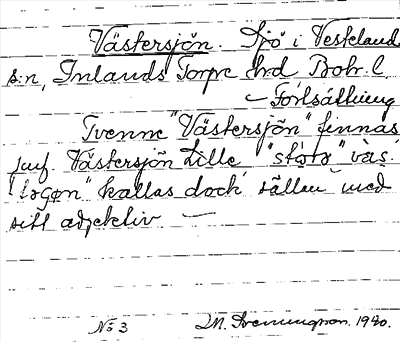 Västersjön. Sjö i Vesteland
s:n, Inlands Torpe Hrd Boh. l.
— Fortsättning
Tvenne "Västersjön" finnas
jmf. Västersjön Lille "
kallas dock sällan med
sitt adjektiv —
No 3 1940.